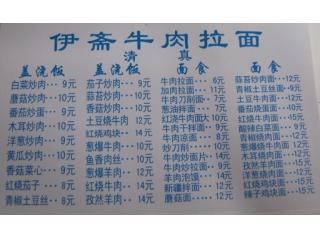 伊斋牛肉拉面
清真
盖浇饭 盖浇饭 面食
白菜炒肉··· 9元 茄子炒肉··· 9元 牛肉拉面·· 6元 蒜苔炒肉面··12元
蘑菇炒肉···10元 蒜苔炒肉···10元 加肉拉面··11元 青椒土豆丝面·9元
番茄炒蛋··· 9元 香菇炒肉···10元 牛肉刀削面·7元 土豆牛肉面··12元
木耳炒肉···10元 土豆烧牛肉 12元 葱油拌面·· 7元 番茄鸡蛋面··10元
洋葱炒肉··· 9元 红烧鸡块··14元 红浇牛肉面10元 红烧牛肉面··15元
黄瓜炒肉···10元 番茄牛肉··12元 牛肉干拌面·9元 酸辣白菜面·· 9元
香菇菜心··· 9元 葱爆牛肉··10元 牛肉凉面·· 8元 青椒炒肉面··10元
红烧茄子··· 8元 鱼香肉丝··10元 炒刀削····10元 番茄烧面···10元
青椒土豆丝·· 8元 葱爆羊肉··12元 牛肉炒面片··9元 葱爆羊肉面··15元
红烧牛肉··14元 牛肉炒拉面··9元 木耳炒肉面··12元
孜然羊肉··14元 羊肉泡馍··14元 孜然羊肉面··15元
新疆拌面··12元 洋葱炒肉面··12元
蘑菇面····12元 红烧鸡块面··15元
辣子鸡块面··15元